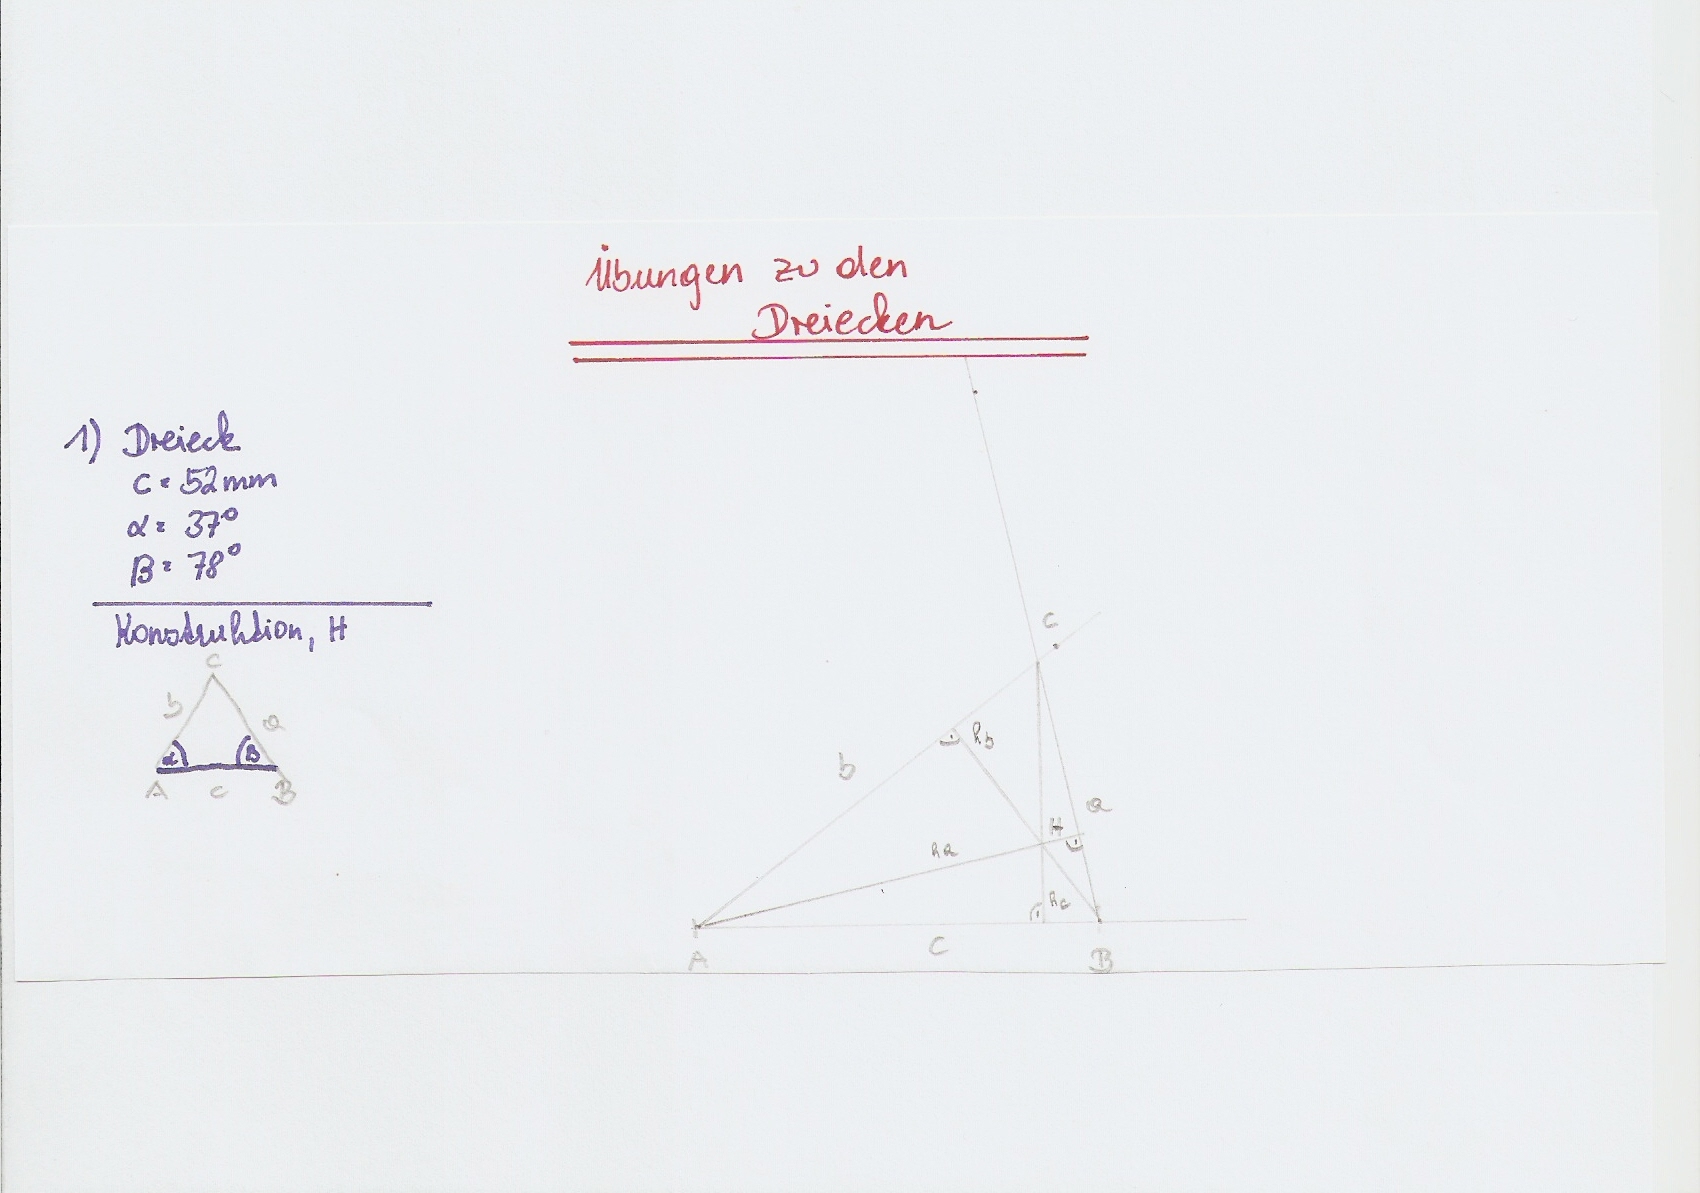 Übungen zu den
Dreiecken
1) Dreieck
c = 52mm
α = 37°
β = 78°
Konstruktion, H
C
b
a
α
β
A
c
B
C
hb
b
a
H
ha
hc
c
A
B